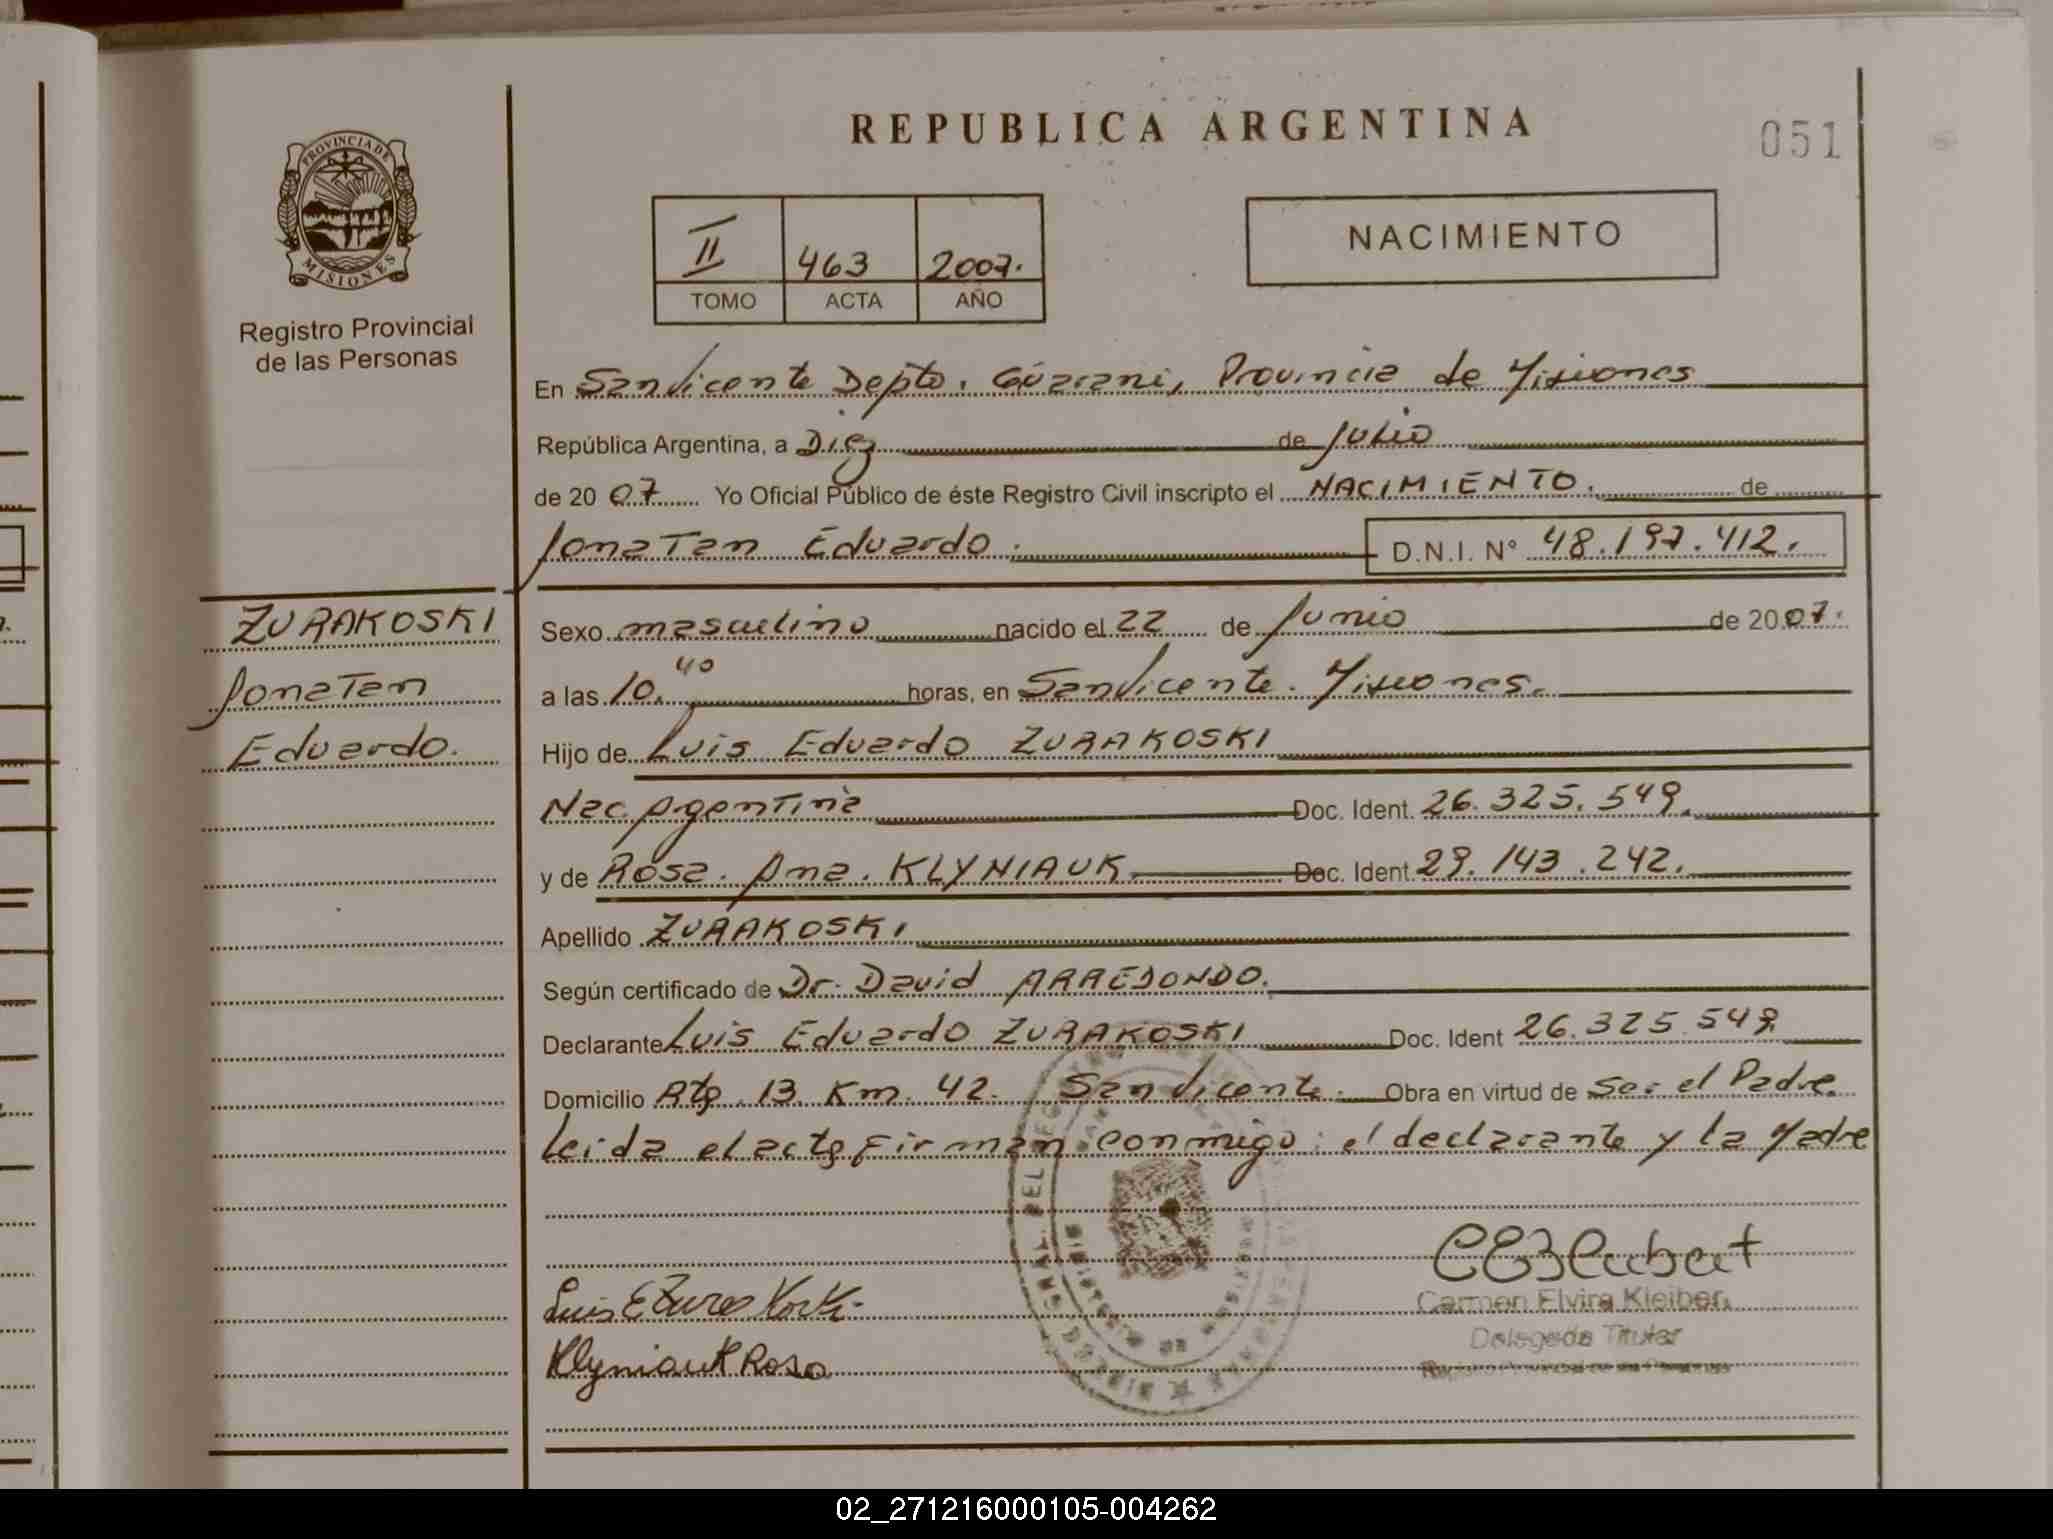 REPUBLICA ARGENTINA
051
PROVINCIA DE
MISIONES
Registro Provincial
de las Personas
II 463 2007.
TOMO ACTA AÑO
NACIMIENTO
En San Vicente Depto. Guarani, Provincia de Misiones
República Argentina, a Diez de Julio
de 20 07 Yo Oficial Público de éste Registro Civil inscripto el NACIMIENTO. de
Jonatan Eduardo. D.N.I. N° 48.197.412.
ZURAKOSKI
Jonatan
Eduardo.
Sexo masculino nacido el 22 de Junio de 20 07.
a las 10.40 horas, en San Vicente. Misiones.
Hijo de Luis Eduardo ZURAKOSKI
Nac. Argentina Doc. Ident. 26.325.549.
y de Rosa. Ana. KLYNIAUK Doc. Ident. 29.143.242.
Apellido ZURAKOSKI
Según certificado de Dr. David ARREDONDO.
Declarante Luis Eduardo ZURAKOSKI Doc. Ident 26.325.549.
Domicilio Rta. 13 Km. 42. San Vicente. Obra en virtud de ser el Padre.
Leida el acta firman conmigo: el declarante y la Madre
Carmen Elvira Kleiber
Delegada Titular
Klyniauk Rosa
02_271216000105-004262